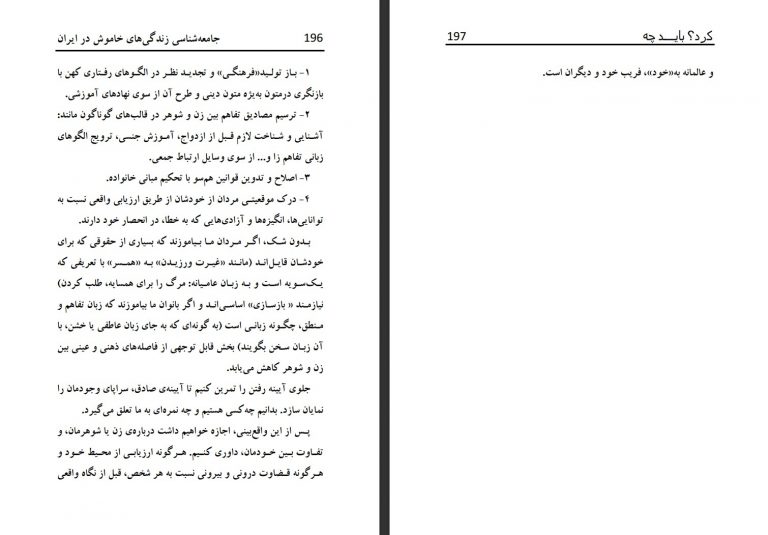 196 جامعه‌شناسی زندگی‌های خاموش در ایران
۱- باز تولید«فرهنگی» و تجدید نظر در الگوهای رفتاری کهن با
بازنگری درمتون به‌یژه متون دینی و طرح آن از سوی نهادهای آموزشی.
۲- ترسیم مصادیق تفاهم بین زن و شوهر در قالب‌های گوناگون مانند:
آشنایی و شناخت لازم قبل از ازدواج، آموزش جنسی، ترویج الگوهای
زبانی تفاهم زا و... از سوی وسایل ارتباط جمعی.
۳- اصلاح و تدوین قوانین هم‌سو با تحکیم مبانی خانواده.
۴- درک موقعیتی مردان از خودشان از طریق ارزیابی واقعی نسبت به
توانایی‌ها، انگیزه‌ها و آزادی‌هایی که به خطا، در انحصار خود دارند.
بدون شک، اگر مردان ما بیاموزند که بسیاری از حقوقی که برای
خودشان قایل‌اند (مانند «غیرت ورزیدن» به «همسر» با تعریفی که
یک‌سویه است و به زبان عامیانه: مرگ را برای همسایه، طلب کردن)
نیازمند « بازسازی» اساسی‌اند و اگر بانوان ما بیاموزند که زبان تفاهم و
منطق، چگونه زبانی است (به گونه‌ای که به جای زبان عاطفی یا خشن، با
آن زبان سخن بگویند) بخش قابل توجهی از فاصله‌های ذهنی و عینی بین
زن و شوهر کاهش می‌یابد.
جلوی آیینه رفتن را تمرین کنیم تا آیینه‌ی صادق، سراپای وجودمان را
نمایان سازد. بدانیم چه‌کسی هستیم و چه نمره‌ای به ما تعلق می‌گیرد.
پس از این واقع‌بینی، اجازه خواهیم داشت درباره‌ی زن یا شوهرمان، و
تفاوت بین خودمان، داوری کنیم. هرگونه ارزیابی از محیط خود و
هرگونه قضاوت درونی و بیرونی نسبت به هر شخص، قبل از نگاه واقعی
کرد؟ بایـــد چه 197
و عالمانه به«خود»، فریب خود و دیگران است.